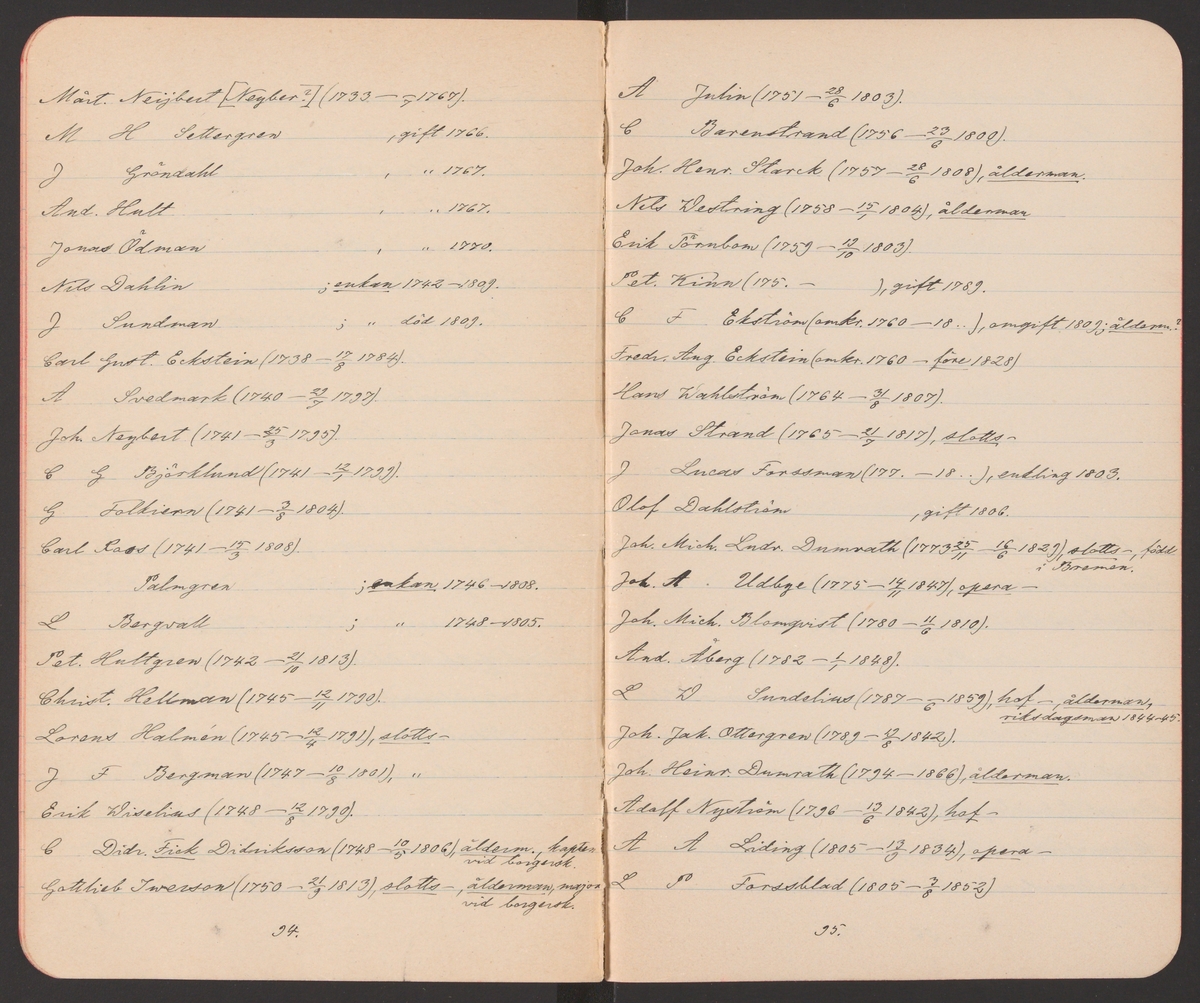 Mårt. Neijbert [Neyber.?] (1733 — –/7 1767).
M H Settergren , gift 1766.
J Gröndahl , " 1767.
And. Hult , " 1767.
Jonas Ödman , " 1770.
Nils Dahlin ; enkan 1742 — 1809.
J Sundman ; " död 1809.
Carl Gust. Eckstein (1738 — 17/8 1784).
A Svedmark (1740 — 29/7 1797).
Joh. Neybert (1741 — 25/9 1795).
C G Björklund (1741 — 12/1 1799).
G Foltiern (1741 — 3/8 1804).
Carl Roos (1741 — 15/3 1808).
Palmgren ; enkan 1746 — 1808.
L Bergvall ; " 1748 — 1805.
Pet. Hultgren (1742 — 21/10 1813).
Christ. Hellman (1745 — 12/11 1790).
Lorens Halmén (1745 — 12/4 1791), slotts —
J F Bergman (1747 — 10/8 1801), "
Erik Wiselius (1748 — 12/8 1790).
C Didr. Fick Didriksson (1748 — 10/5 1806), ålderm., kapten
vid borgersk.
Gottlieb Iwerson (1750 — 21/9 1813), slotts —, ålderman, major
vid borgersk.
94.
A Julin (1751 — 28/6 1803).
C Barenstrand (1756 — 23/6 1800).
Joh. Henr. Starck (1757 — 28/6 1808), ålderman.
Nils Westring (1758 — 15/1 1804), ålderman
Erik Törnbom (1759 — 19/10 1803).
Pet. Kinn (175. — ), gift 1789.
C F Ekström (omkr. 1760 — 18..), omgift 1809; ålderm.?
Fredr. Aug Eckstein (omkr. 1760 — före 1828)
Hans Wahlström (1764 — 31/8 1807).
Jonas Strand (1765 — 21/7 1817), slotts —
J Lucas Forssman (177. — 18..), enkling 1803.
Olof Dahlström , gift 1806.
Joh. Mich. Ludv. Dumrath (1773 25/11 — 16/6 1829), slotts —, född
i Bremen.
Joh. A. Udbye (1775 — 14/11 1847), opera —
Joh. Mich. Blomqvist (1780 — 11/6 1810).
And. Åberg (1782 — 1/1 1848).
L W Sundelius (1787 — –/6 1859), hof —, ålderman,
riksdagsman 1844–45.
Joh. Jak. Ottergren (1789 — 12/8 1842).
Joh. Heinr. Dumrath (1794 — 1866), ålderman.
Adolf Nyström (1796 — 13/6 1842), hof —
A A Liding (1805 — 13/9 1834), opera —
L P Forssblad (1805 — 3/8 1852)
95.